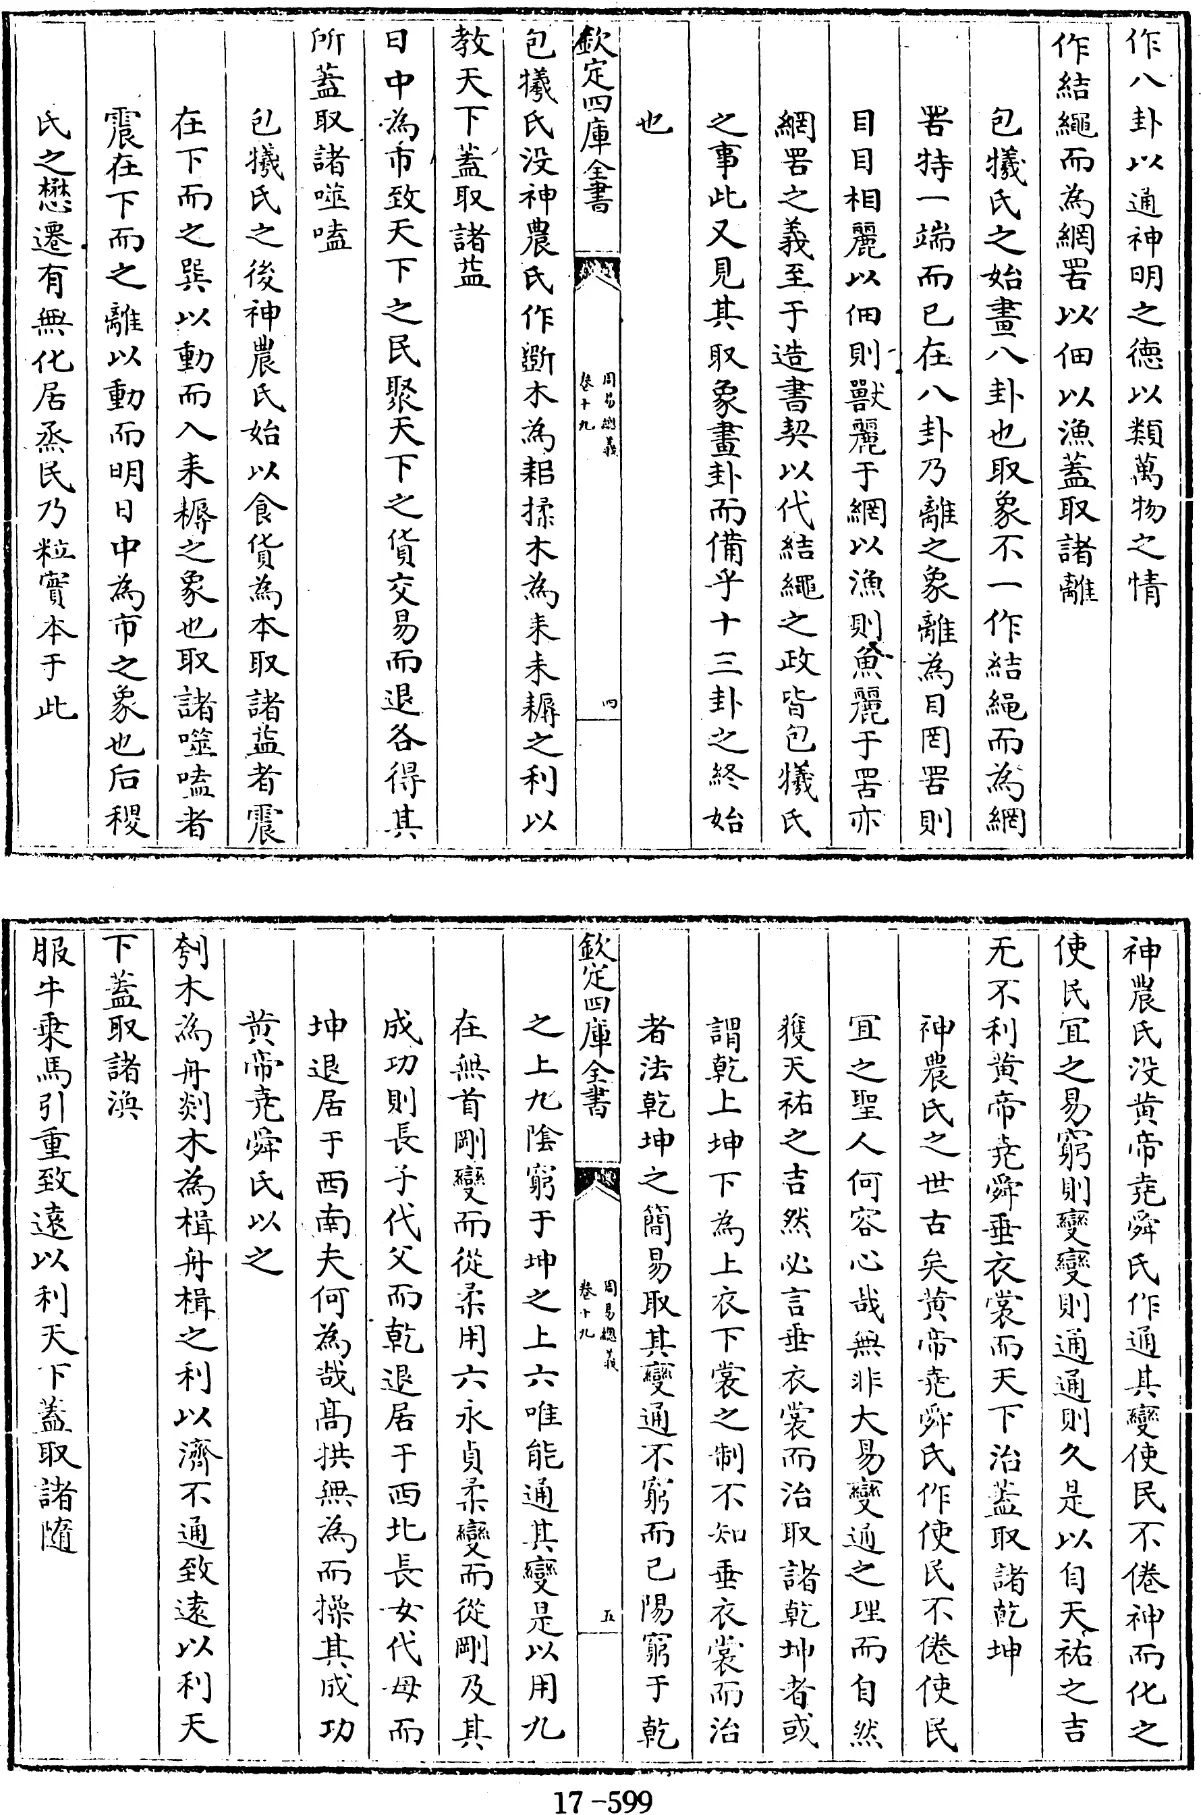 作八卦以通神明之徳以類萬物之情
作結繩而為網罟以佃以漁蓋取諸離
包犧氏之始畫八卦也取象不一作結繩而為網
罟特一端而已在八卦乃離之象離為目罔罟則
目目相麗以佃則獸麗于網以漁則魚麗于罟亦
網罟之義至于造書契以代結繩之政皆包犧氏
之事此又見其取象畫卦而備乎十三卦之終始
也
欽定四庫全書
周易總義
卷十九
四
包犧氏没神農氏作斵木為耜揉木為耒耒耨之利以
教天下蓋取諸益
日中為市致天下之民聚天下之貨交易而退各得其
所蓋取諸噬嗑
包犧氏之後神農氏始以食貨為本取諸益者震
在下而之巽以動而入耒耨之象也取諸噬嗑者
震在下而之離以動而明日中為市之象也后稷
氏之懋遷有無化居烝民乃粒實本于此
神農氏没黄帝堯舜氏作通其變使民不倦神而化之
使民宜之易窮則變變則通通則久是以自天祐之吉
无不利黄帝堯舜垂衣裳而天下治蓋取諸乾坤
神農氏之世古矣黄帝堯舜氏作使民不倦使民
宜之聖人何容心哉無非大易變通之理而自然
獲天祐之吉然必言垂衣裳而治取諸乾坤者或
謂乾上坤下為上衣下裳之制不知垂衣裳而治
者法乾坤之簡易取其變通不窮而已陽窮于乾
欽定四庫全書
周易總義
卷十九
五
之上九陰窮于坤之上六唯能通其變是以用九
在無首剛變而從柔用六永貞柔變而從剛及其
成功則長子代父而乾退居于西北長女代母而
坤退居于西南夫何為哉髙拱無為而操其成功
黄帝堯舜氏以之
刳木為舟剡木為楫舟楫之利以濟不通致逺以利天
下蓋取諸渙
服牛乘馬引重致逺以利天下蓋取諸隨
17-599